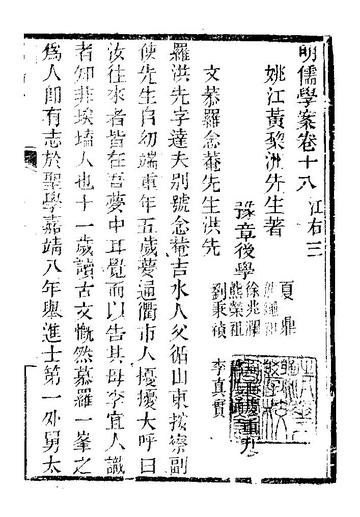 明儒學案卷十八 江右三
姚江黃黎洲先生著
豫章後學
夏鼎
徐兆瀾
熊榮祖
劉秉禎
李真實
文恭羅念菴先生洪先
羅洪先字達夫別號念菴吉水人父循山東按察副
使先生自幼端重年五歲夢通衢市人擾擾大呼曰
汝往來者皆在吾夢中耳覺而以告其母李宜人識
者知非埃壒人也十一歲讀古文慨然慕羅一峯之
爲人卽有志於聖學嘉靖八年舉進士第一外舅太